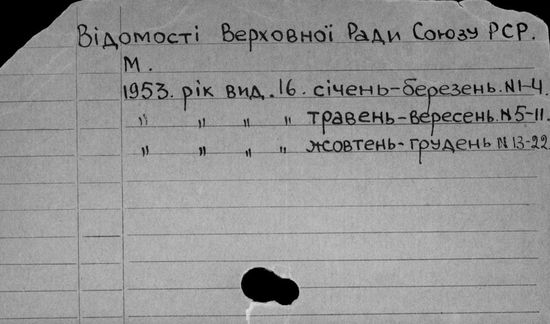 Відомості Верховної Ради Союзу РСР.
М.
1953. рік вид. 16. січень-березень. №1-4.
" " " " травень-вересень. №5-11.
" " " " жовтень-грудень №13-22